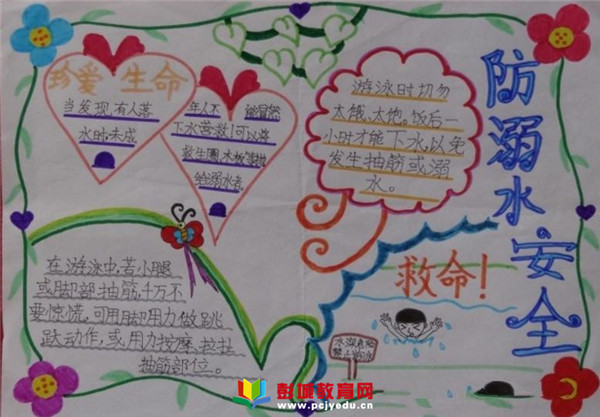 珍爱 生命
当发现有人落
水时,未成
年人不 能冒然
下水营救!可以将
救生圈、木板等抛
给溺水者
游泳时切勿
太饿、太饱。饭后一
小时才能下水,以免
发生抽筋或溺
水。
防溺水安全
在游泳中,若小腿
或脚部抽筋,千万不
要惊慌,可用脚用力做跳
跃动作,或用力按摩、拉扯
抽筋部位。
救命!
水深危险
禁止游泳
彭城教育网
www.pcjyedu.cn